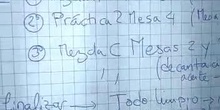 ② Práctica 2 Mesa 4 (Mesa
③ Mezcla C Mesas 2 y
(decantación
aceite
finalizar → Todo limpio →